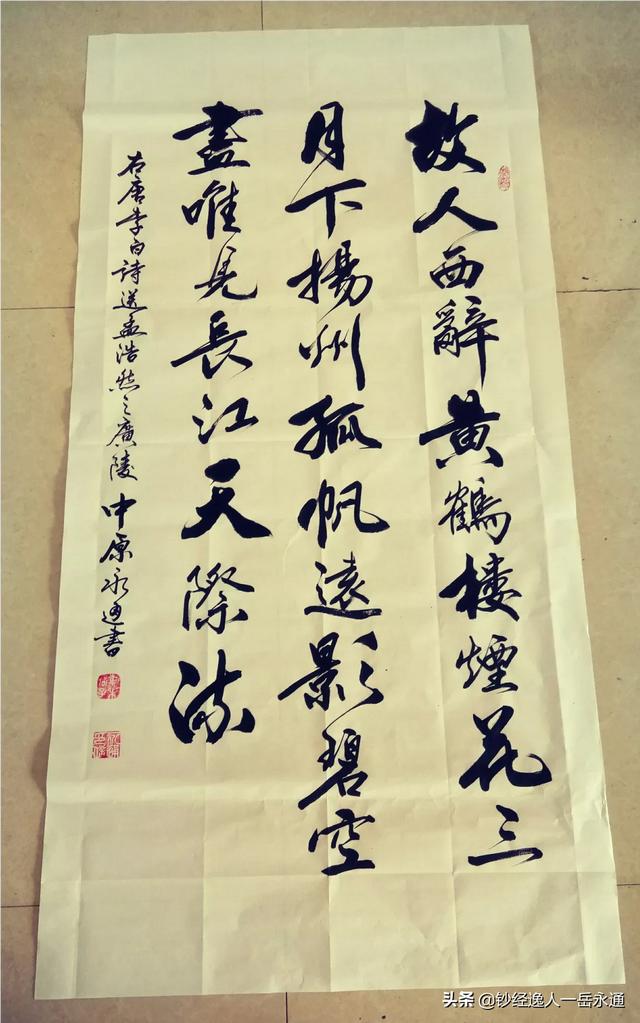 故人西辭黄鶴楼煙花三
月下揚州孤帆遠影碧空
盡唯見長江天際流
右唐李白詩送孟浩然之廣陵 中原永通書
头条 @钞经逸人一岳永通